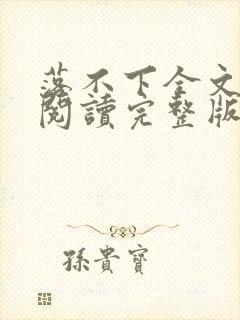 落不下全文
閱讀完整版
孫貴寶